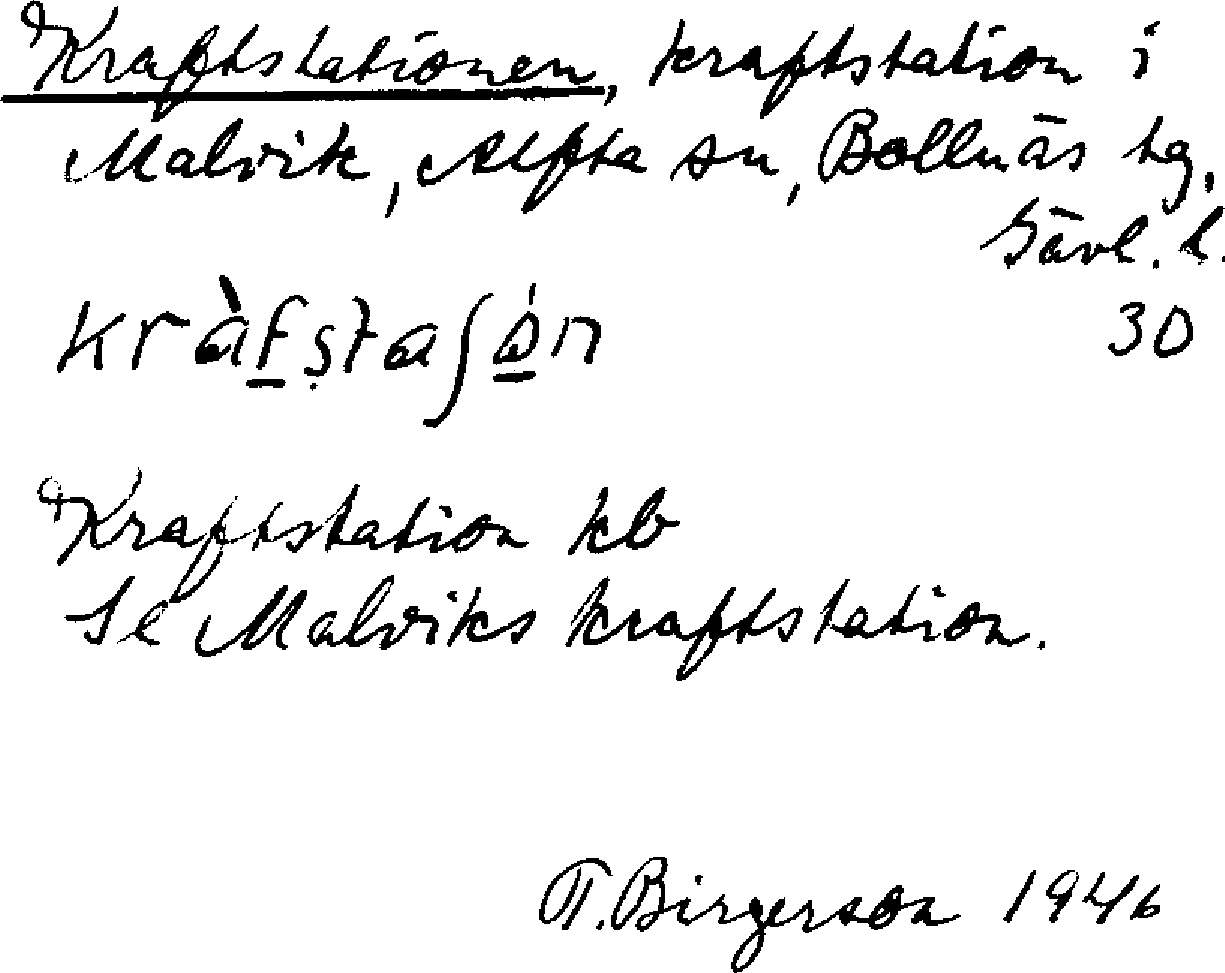 Kraftstationen, kraftstation i
Malvik, Alfta sn, Bollnäs tg,
Gävl. l.
kràf̱ṣtaʃó̱n 30
Kraftstation kb
Se Malviks kraftstation.
T. Birgerson 1946